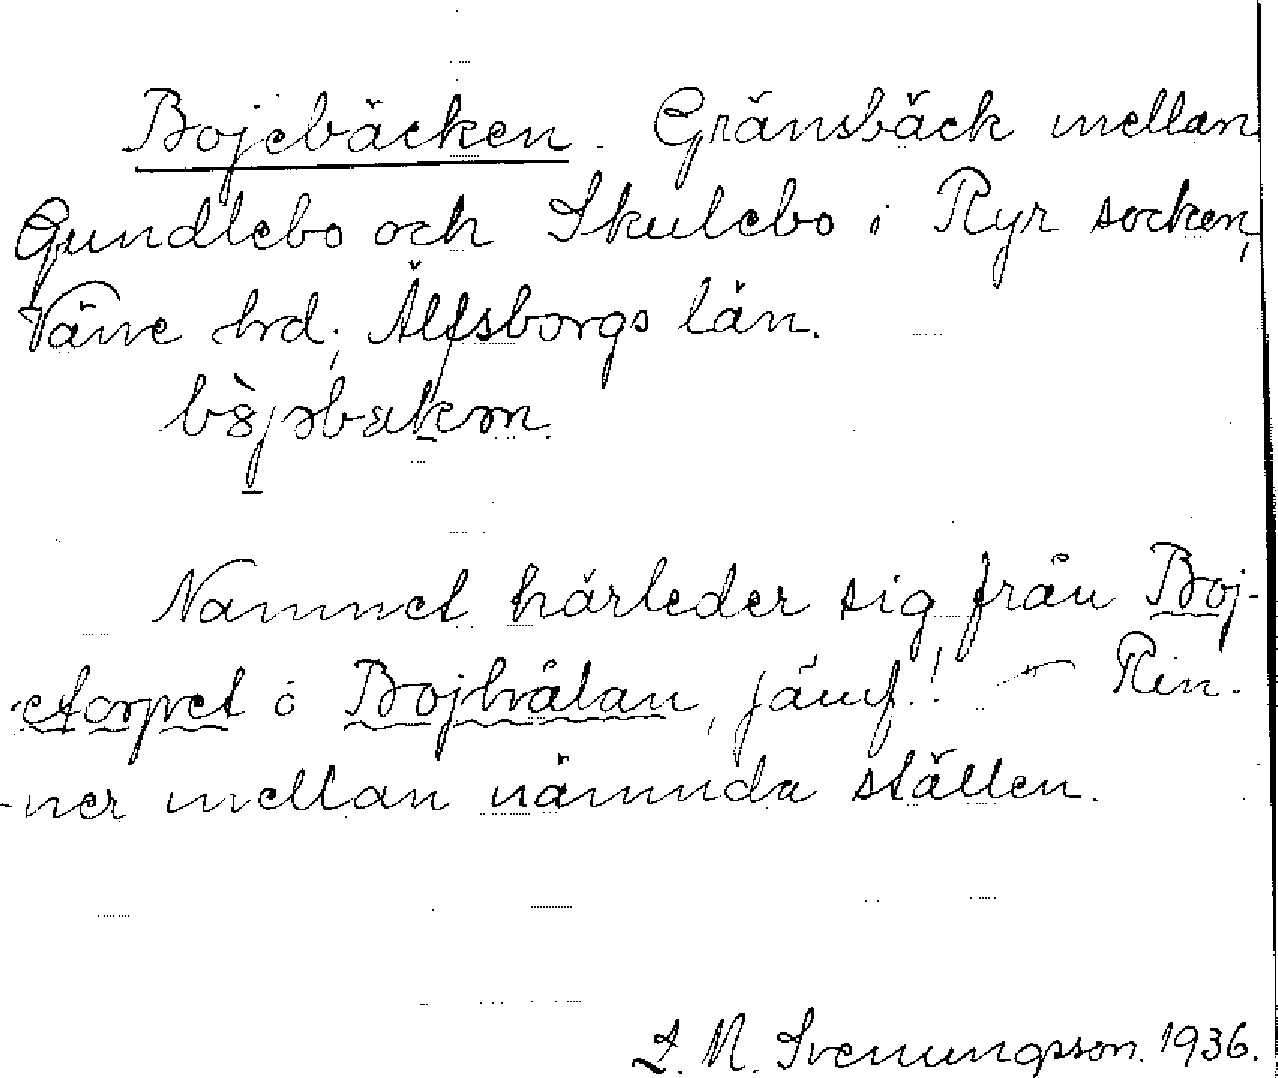 Bojebäcken. Gränsbäck mellan
Gundlebo och Skulebo i Ryr socken,
Väne hrd; Älfsborgs län.
Namnet härleder sig från Boj-
-etorpet o Bojhvålan, jämf! — Rin-
-ner mellan nämnda ställen.
L. M. Svenungsson. 1936.